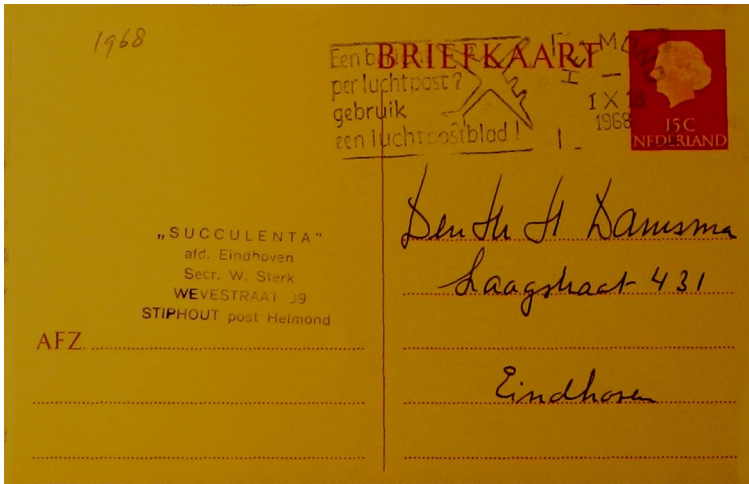 1968
BRIEFKAART
Een
per luchtpost?
gebruik
een luchtpostblad!
1 X 18
1968
15 C
NEDERLAND
„SUCCULENTA"
afd. Eindhoven
Secr. W. Sterk
WEVESTRAAT 39
STIPHOUT post Helmond
AFZ.
Den Hr H Damsma
Laagstraat 431
Eindhoven